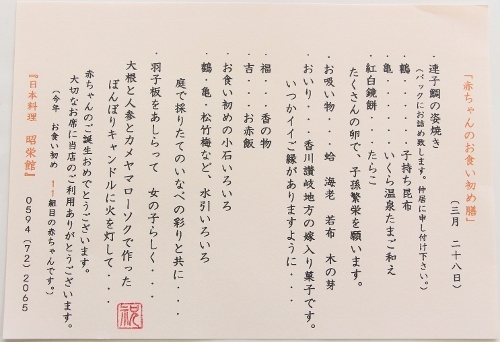 「赤ちゃんのお食い初め膳」
(三月 二十八日)
・連子鯛の姿焼き
(パックにお詰め致します。仲居に申し付け下さい。)
・鶴・・・・・・子持ち昆布
・亀・・・・・・いくら温泉たまご和え
・紅白鏡餅・・・・たらこ
たくさんの卵で、子孫繁栄を願います。
・お吸い物・・・蛤 海老 若布 木の芽
・おいり・・・・香川讃岐地方の嫁入り菓子です。
いつかイイご縁がありますように・・・・
・福・・・香の物
・吉・・・お赤飯
・お食い初めの小石いろいろ
・鶴、亀・松竹梅など、水引いろいろ
庭で採りたてのいなべの彩りと共に・・・・
・羽子板をあしらって 女の子らしく・・・・
大根と人参とカメヤマローソクで作った
ぼんぼりキャンドルに火を灯して・・・・
赤ちゃんのご誕生おめでとうございます。
大切なお席に当店のご利用ありがとうございます。
(今年 お食い初め 11組目の赤ちゃんです。)
『日本料理 昭栄館』 0594(72)2065
祝